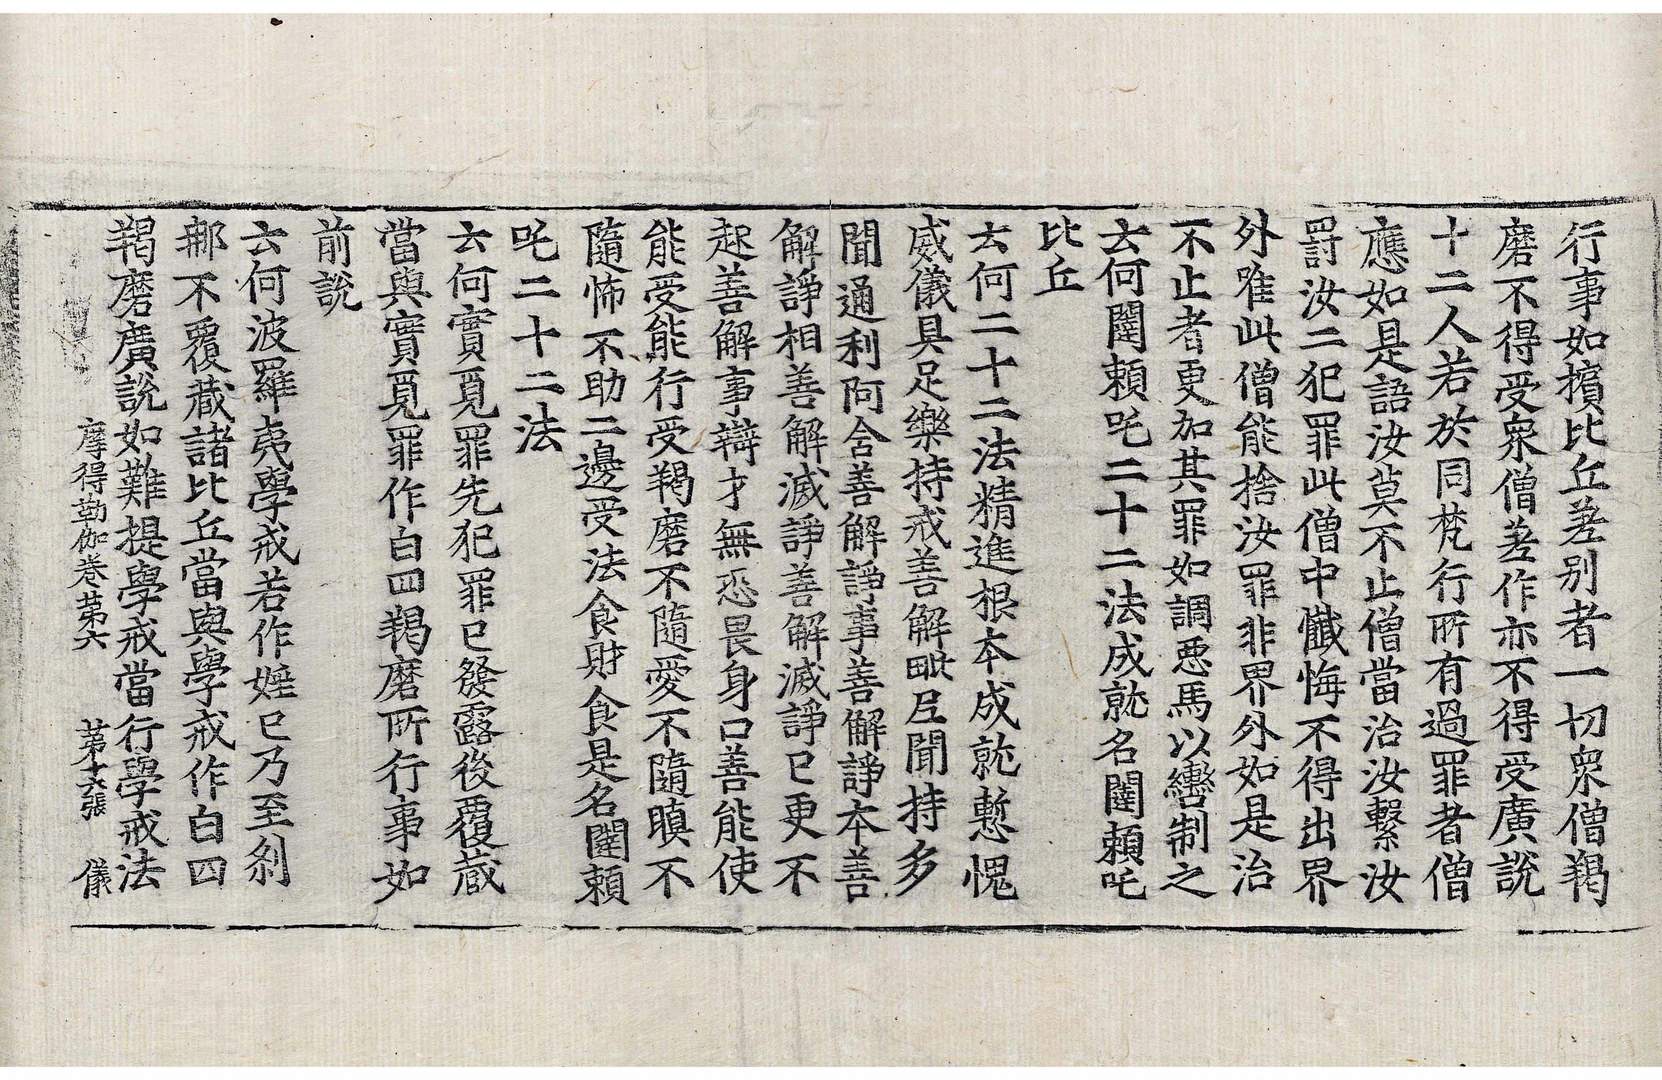 行事如擯比丘差別者一切衆僧羯
磨不得受衆僧差作亦不得受廣說
十二人若於同梵行所有過罪者僧
應如是語汝莫不止僧當治汝繫汝
罰汝二犯罪此僧中懺悔不得出界
外唯此僧能捨汝罪非界外如是治
不止者更加其罪如調惡馬以轡制之
云何闥賴吒二十二法成就名闥賴吒
比丘
云何二十二法精進根本成就慙愧
威儀具足樂持戒善解毗尼聞持多
聞通利阿含善解諍事善解諍本善
解諍相善解滅諍善解滅諍已更不
起善解事辯才無恐畏身口善能使
能受能行受羯磨不隨愛不隨瞋不
隨怖不助二邊受法食財食是名闥賴
吒二十二法
云何實覓罪先犯罪已發露後覆藏
當與實覓罪作白四羯磨所行事如
前說
云何波羅夷學戒若作婬已乃至刹
那不覆藏諸比丘當與學戒作白四
羯磨廣說如難提學戒當行學戒法
摩得勒伽卷苐六 苐十六張 儀